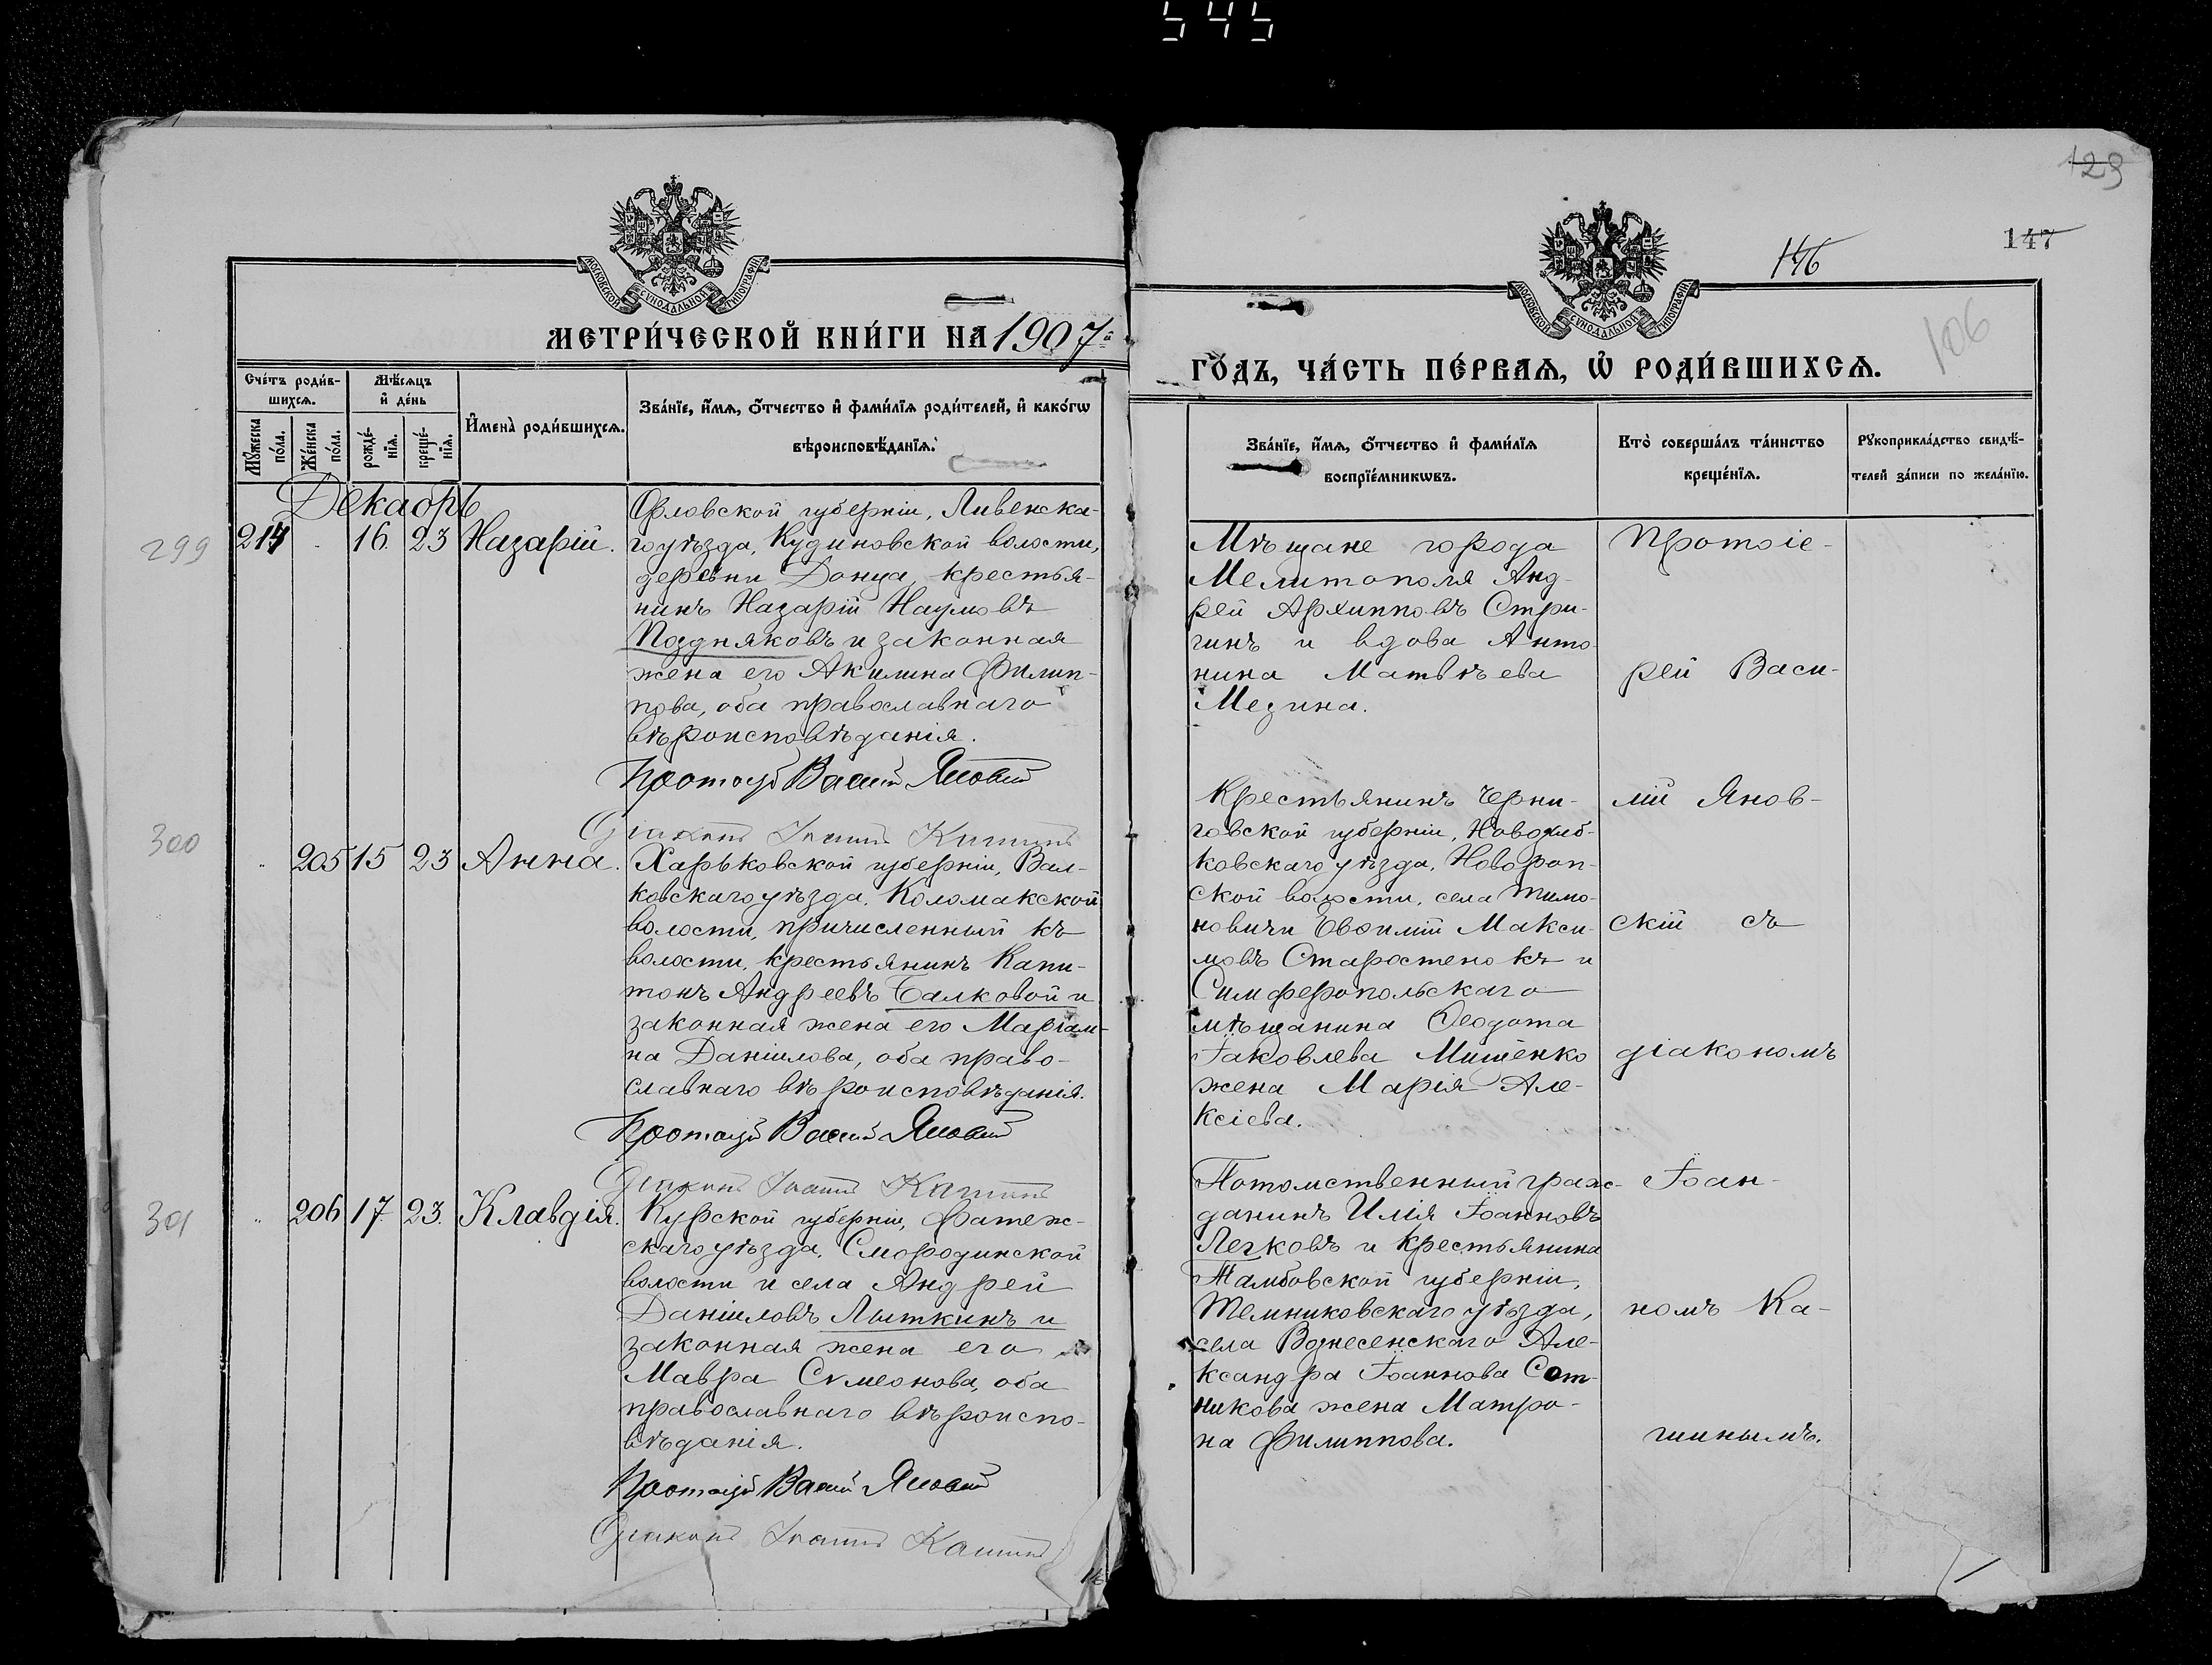 545
129
146
147
106
МОСКОВСКОЙ СѴНОДАЛЬНОЙ ТИПОГРАФІИ
МОСКОВСКОЙ СѴНОДАЛЬНОЙ ТИПОГРАФІИ
МЕТРИ́ЧЕСКОЙ КНИ́ГИ НА 1907й
ГО́ДЪ, ЧА́СТЬ ПЕ́РВАѦ, Ѡ҆ РОДИ́ВШИХСѦ.
Сче́тъ роди́в-
шихсѧ.
Мѣ́сѧцъ
и҆ де́нь
Мꙋ́жеска по́ла.
Же́нска по́ла.
рожде́-нїѧ.
креще́-нїѧ.
И҆мена̀ роди́вшихсѧ.
Зва́нїе, и҆́мѧ, ѻ҆́тчество и҆ фами́лїѧ роди́телей, и҆ како́гѡ
вѣроисповѣ́данїѧ.
Зва́нїе, и҆́мѧ, ѻ҆́тчество и҆ фами́лїѧ
воспрїе́мникѡвъ.
Кто̀ соверша́лъ та́инство
креще́нїѧ.
Рꙋкоприкла́дство свидѣ́-
телей за́писи по жела́нїю.
Декабрь
299
214 16. 23 Назарій.
Орловской губерніи, Ливенска-
го уѣзда, Кудиновской волости,
деревни Донца, крестья-
нинъ Назарій Наумовъ
Поздняковъ и законная
жена его Акилина Филип-
пова, оба православнаго
вѣроисповѣданія.
Протоіерей Василій Яновскій
Діаконъ Іоаннъ Кашинъ
Мѣщане города
Мелитополя Анд-
рей Архипповъ Стри-
гинъ и вдова Анто-
нина Матвѣева
Мезина.
300
205 15 23 Анна.
Харьковской губерніи, Вал-
ковскаго уѣзда, Коломакской
волости, причисленный къ
волости, крестьянинъ Капи-
тонъ Андреевъ Балковой и
законная жена его Маріам-
на Даніилова, оба право-
славнаго вѣроисповѣданія.
Протоіерей Василій Яновскій
Діаконъ Іоаннъ Кашинъ
Крестьянинъ Черни-
говской губерніи, Новозыб-
ковскаго уѣзда, Новороп-
ской волости, села Тимо-
новичи Евѳимій Макси-
мовъ Старостенокъ и
Симферопольскаго
мѣщанина Ѳеодота
Іаковлева Мишенко
жена Марія Але-
ксіева.
301
206 17. 23. Клавдія.
Курской губерніи, Фатеж-
скаго уѣзда, Смородинской
волости и села Андрей
Даніиловъ Лыткинъ и
законная жена его
Мавра Сѵмеонова, оба
православнаго вѣроиспо-
вѣданія.
Протоіерей Василій Яновскій
Діаконъ Іоаннъ Кашинъ
Потомственный граж-
данинъ Илія Іоанновъ
Легковъ и крестьянина
Тамбовской губерніи,
Темниковскаго уѣзда,
села Вознесенскаго Але-
ксандра Іоаннова Сот-
никова жена Матро-
на Филиппова.
Протоіе-
рей Васи-
лій Янов-
скій съ
діакономъ
Іоан-
номъ Ка-
шинымъ.